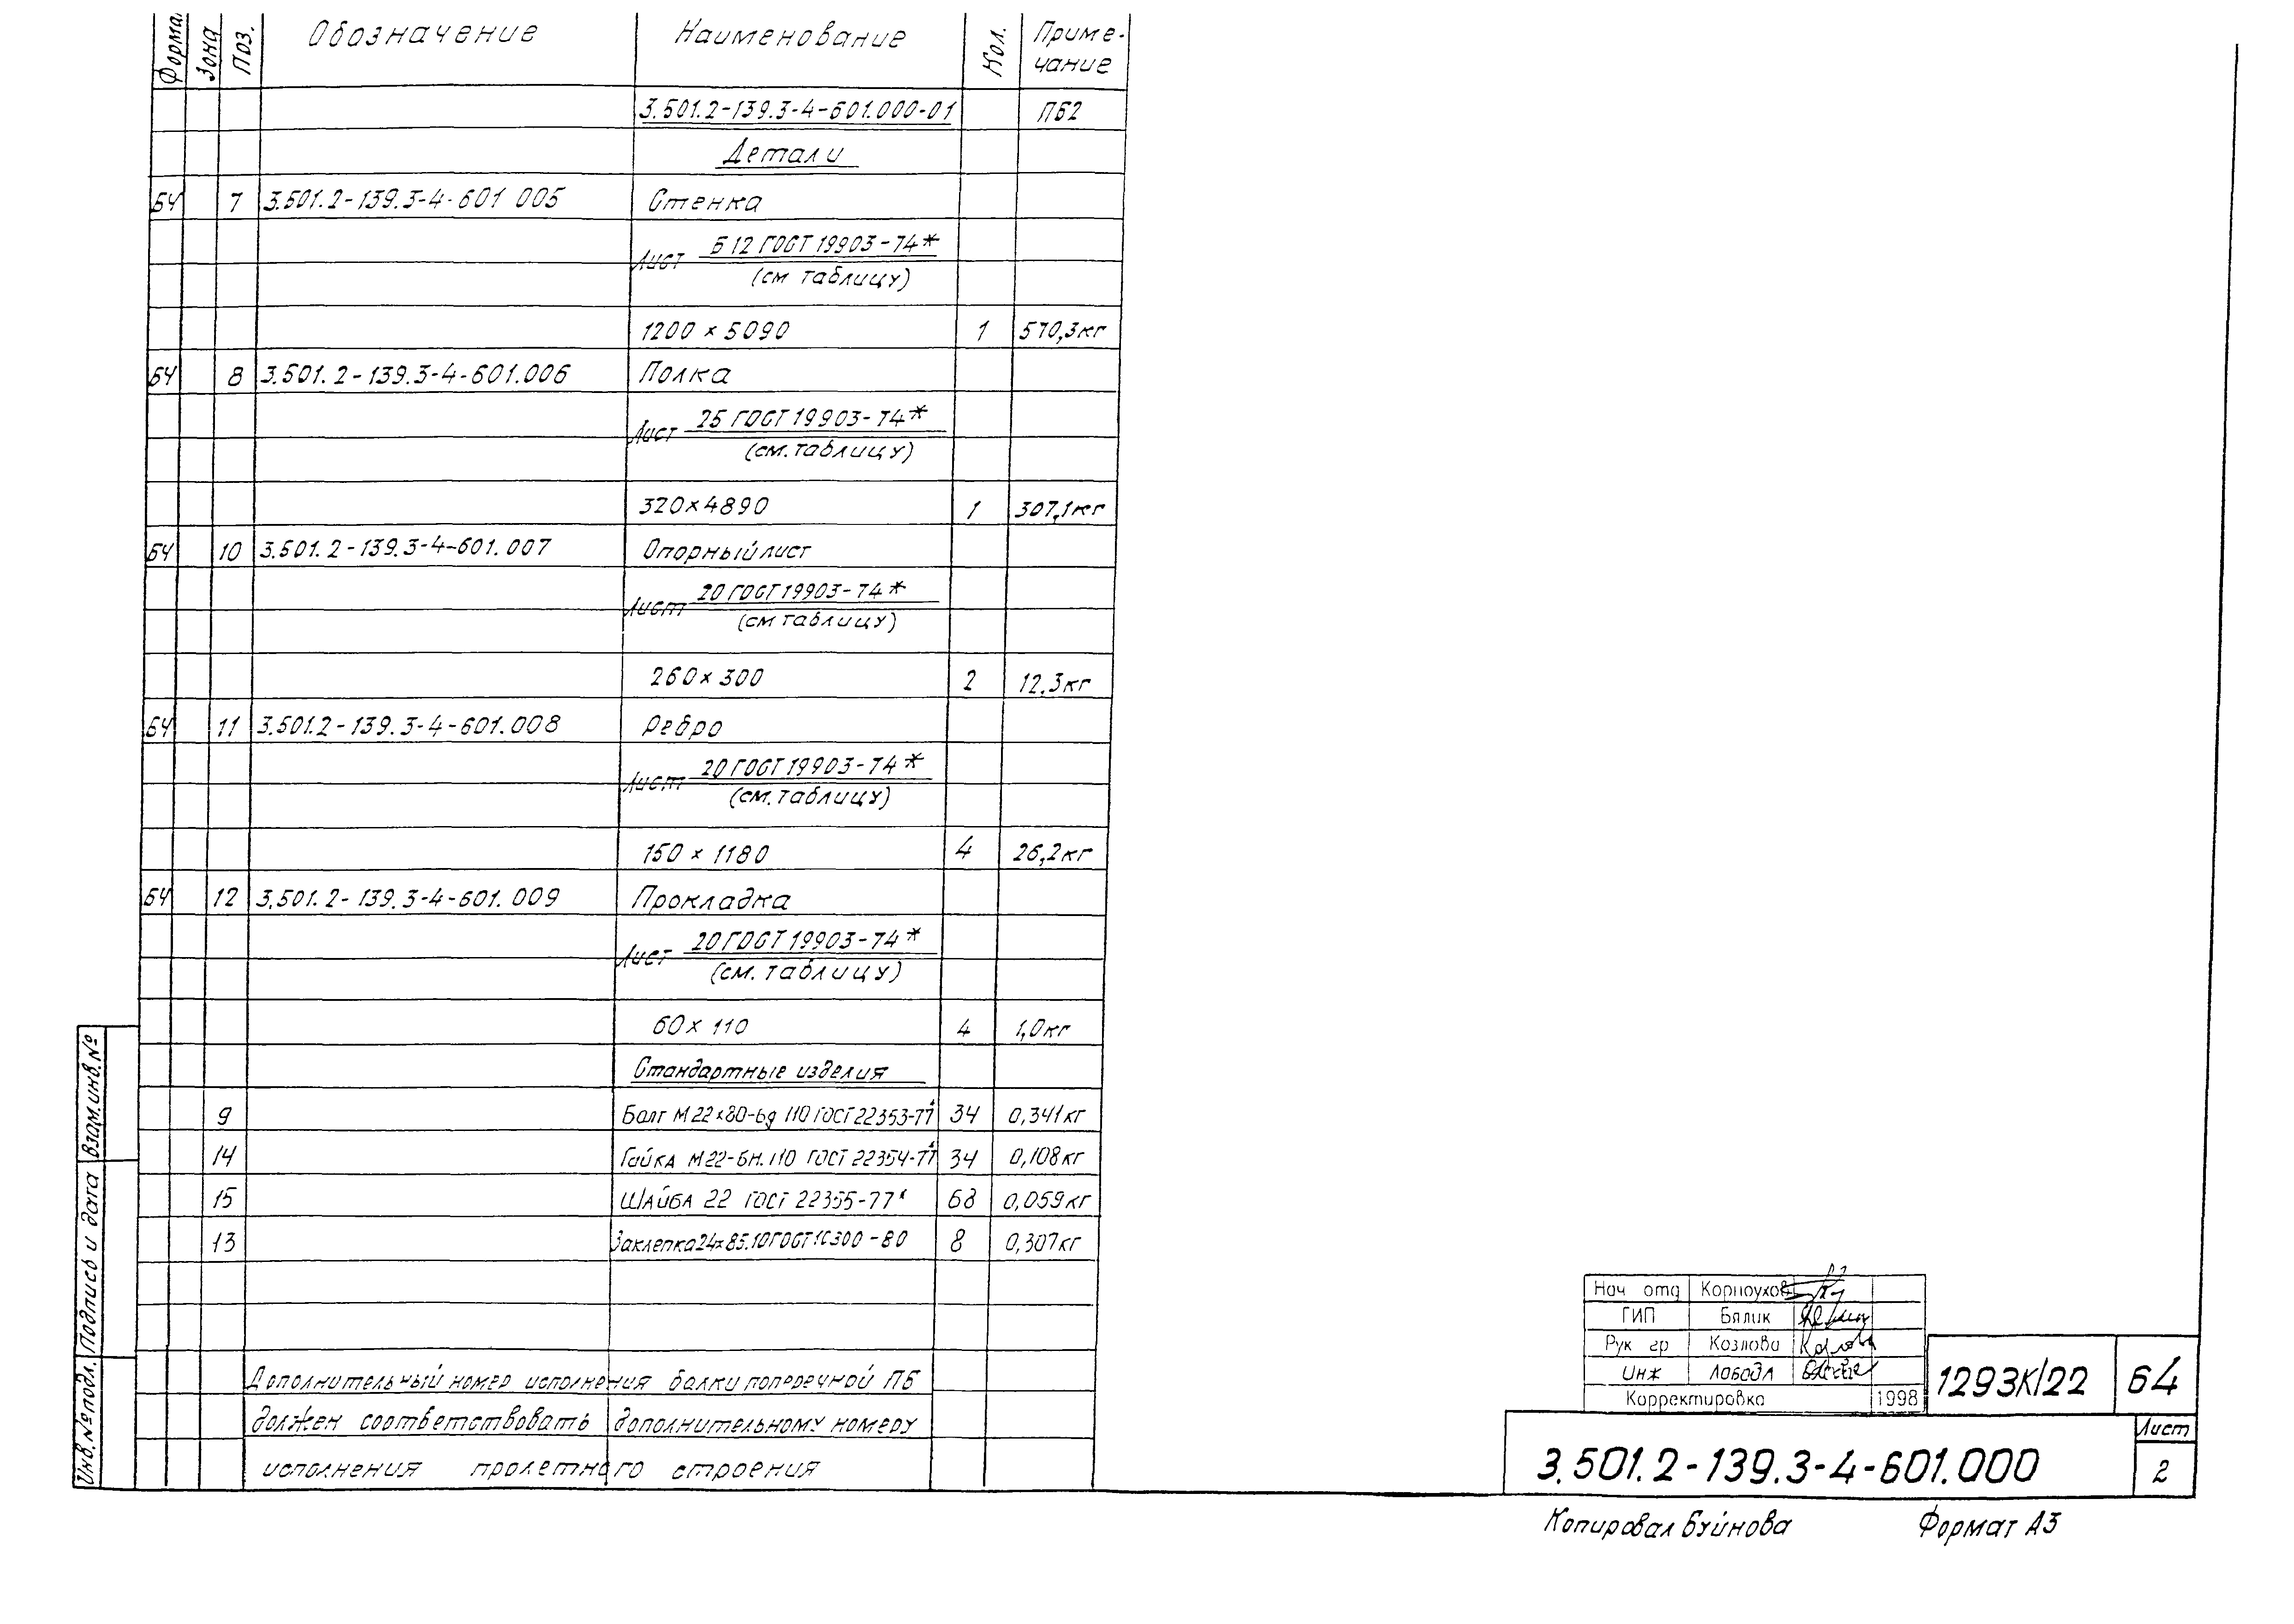 Форма Зона Поз. Обозначение Наименование Кол. Приме-
чание
3.501.2-139.3-4-601.000-01 ПБ2
Детали
БЧ 7 3.501.2-139.3-4-601 005 Стенка
Лист Б 12 ГОСТ 19903-74*
(см таблицу)
1200 × 5090 1 570,3кг
БЧ 8 3.501.2-139.3-4-601.006 Полка
Лист 25 ГОСТ 19903-74*
(см. таблицу)
320×4890 1 307,1кг
БЧ 10 3.501.2-139.3-4-601.007 Опорный лист
Лист 20 ГОСТ 19903-74*
(см таблицу)
260×300 2 12.3кг
БЧ 11 3.501.2-139.3-4-601.008 Ребро
Лист 20 ГОСТ 19903-74*
(см. таблицу)
150 × 1180 4 26,2кг
БЧ 12 3.501.2-139.3-4-601.009 Прокладка
Лист 20 ГОСТ 19903-74*
(см. таблицу)
60× 110 4 1,0кг
Стандартные изделия
9 Болт М22×80-6g 110 ГОСТ 22353-77* 34 0,341кг
14 Гайка М22-6Н.110 ГОСТ 22354-77* 34 0,108кг
15 ШАЙБА 22 ГОСТ 22355-77* 68 0,059кг
13 Заклепка 24×85.10 ГОСТ 10300-80 8 0,307кг
Дополнительный номер исполнения балки поперечной ПБ
должен соответствовать дополнительному номеру
исполнения пролетного строения
Взам.инв.№
Подпись и дата
Инв.№подл.
Нач отд Корноухов
ГИП Бялик
Рук гр Козлова
Инж Лобода
Корректировка 1998
1293К/22 64
3.501.2-139.3-4-601.000
Лист
2
Копировал Буйнова Формат А3